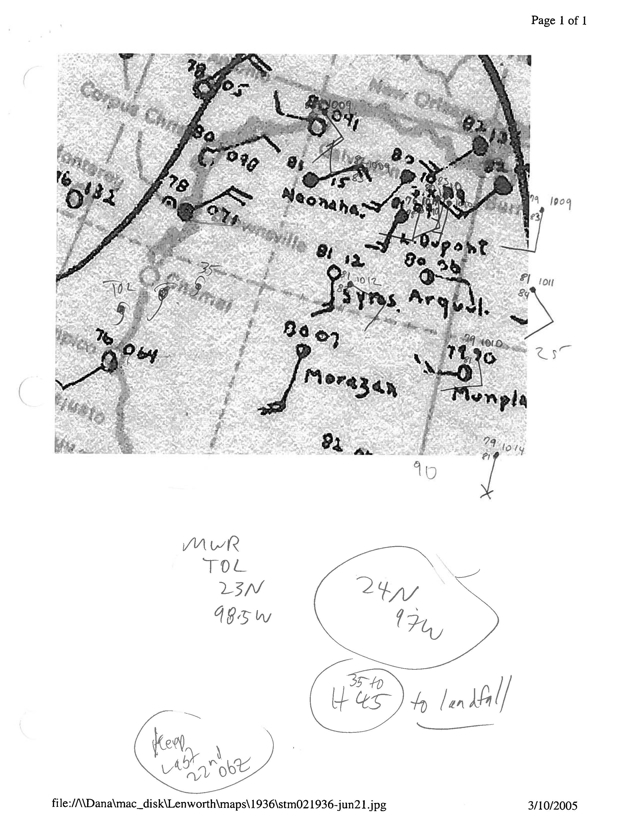 Page 1 of 1
78
05
80
041
1009
New Orl
82 13
Corpus Chr
80
098
Galv
81
15
Neonaha.
82
18
82
79 1009
83
onterey
76
132
78
071
wnsville
L. Dupont
81 12
80 36
81
1012
81 1011
84
TOL
35
Syros.
Arquul.
76
064
80 07
79 1010
25
79 90
Morazan
Munpla
82
79 1014
81
90
MWR
TOL
23N
98.5W
24N
97W
35 to
H 45
to landfall
Keep
last
22nd 06Z
file://\\Dana\mac_disk\Lenworth\maps\1936\stm021936-jun21.jpg
3/10/2005